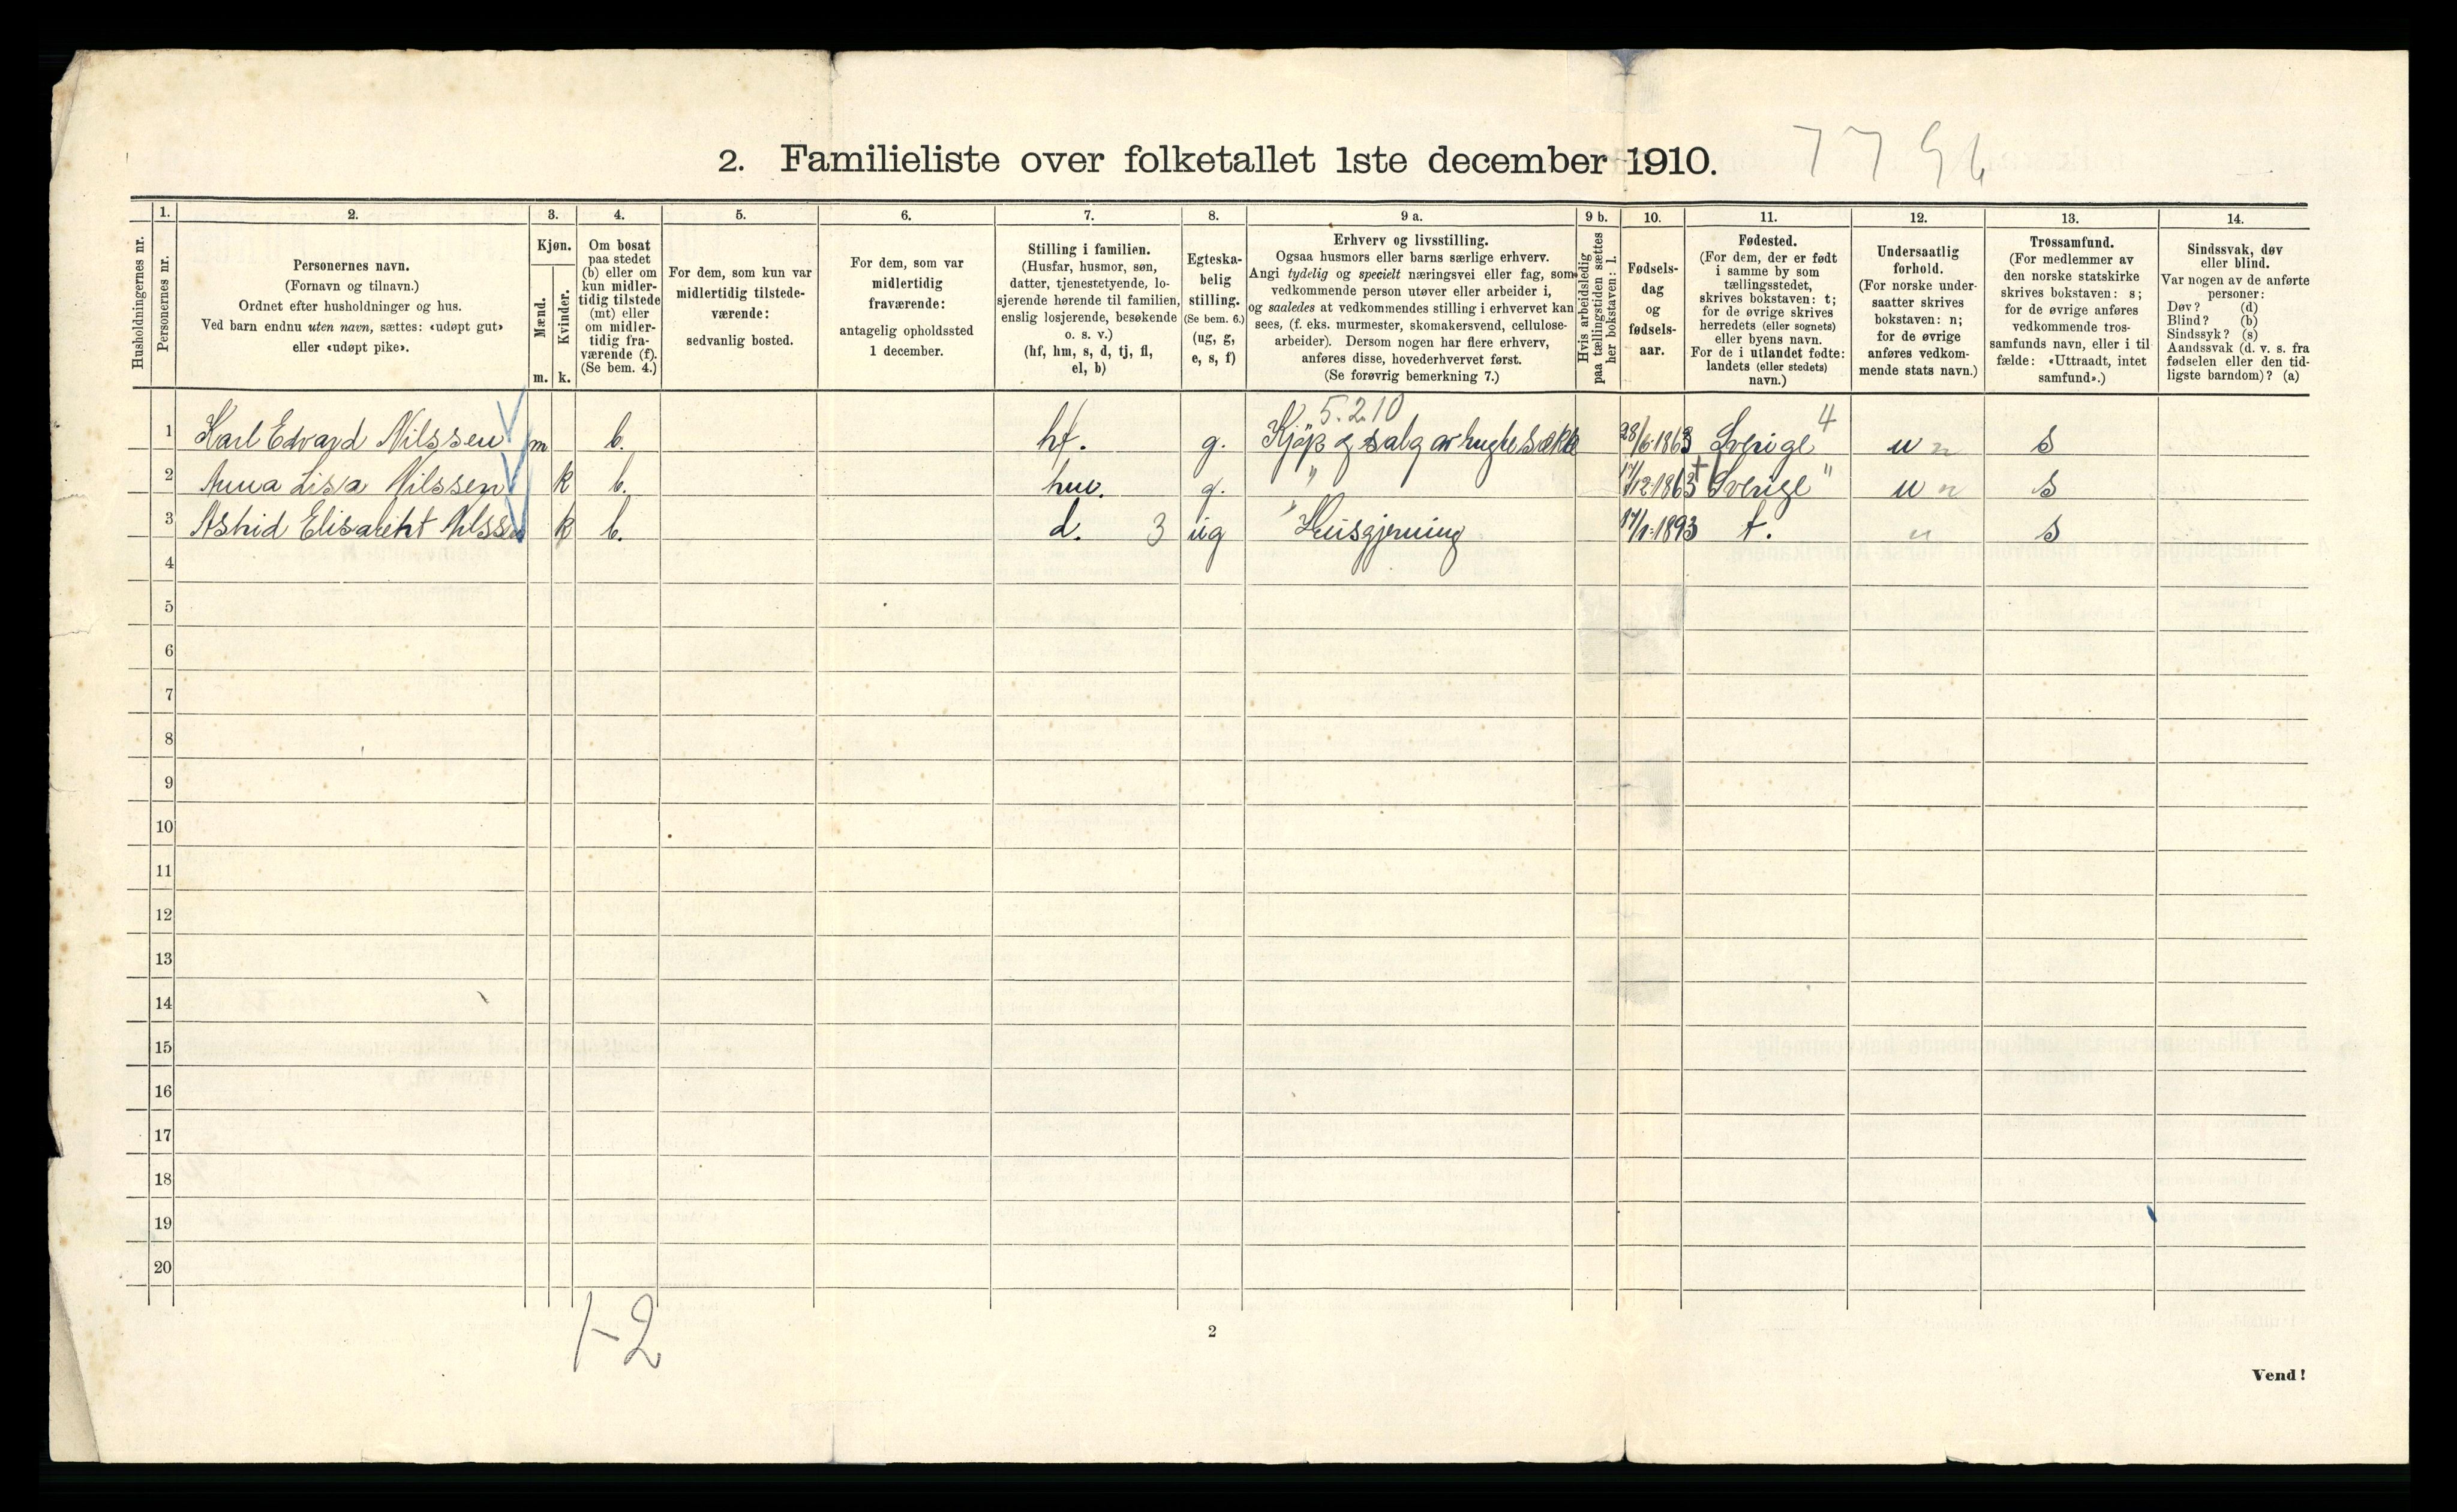 2. Familieliste over folketallet 1ste december 1910.
7796
Husholdningernes nr.
1.
Personernes nr.
2.
Personernes navn.
(Fornavn og tilnavn.)
Ordnet efter husholdninger og hus.
Ved barn endnu uten navn, sættes: «udøpt gut»
eller «udøpt pike».
3.
Kjøn.
Mænd.
m.
Kvinder.
k.
4.
Om bosat
paa stedet
(b) eller om
kun midler-
tidig tilstede
(mt) eller
om midler-
tidig fra-
værende (f).
(Se bem. 4.)
5.
For dem, som kun var
midlertidig tilstede-
værende:
sedvanlig bosted.
6.
For dem, som var
midlertidig
fraværende:
antagelig opholdssted
1 december.
7.
Stilling i familien.
(Husfar, husmor, søn,
datter, tjenestetyende, lo-
sjerende hørende til familien,
enslig losjerende, besøkende
o. s. v.)
(hf, hm, s, d, tj, fl,
el, b)
8.
Egteska-
belig
stilling.
(Se bem. 6.)
(ug, g,
e, s, f)
9 a.
Erhverv og livsstilling.
Ogsaa husmors eller barns særlige erhverv.
Angi tydelig og specielt næringsvei eller fag, som
vedkommende person utøver eller arbeider i,
og saaledes at vedkommendes stilling i erhvervet kan
sees, (f. eks. murmester, skomakersvend, cellulose-
arbeider). Dersom nogen har flere erhverv,
anføres disse, hovederhvervet først.
(Se forøvrig bemerkning 7.)
9 b.
Hvis arbeidsledig
paa tællingstiden sættes
her bokstaven: l.
10.
Fødsels-
dag
og
fødsels-
aar.
11.
Fødested.
(For dem, der er født
i samme by som
tællingsstedet,
skrives bokstaven: t;
for de øvrige skrives
herredets (eller sognets)
eller byens navn.
For de i utlandet fødte:
landets (eller stedets)
navn.)
12.
Undersaatlig
forhold.
(For norske under-
saatter skrives
bokstaven: n;
for de øvrige
anføres vedkom-
mende stats navn.)
13.
Trossamfund.
(For medlemmer av
den norske statskirke
skrives bokstaven: s;
for de øvrige anføres
vedkommende tros-
samfunds navn, eller i til-
fælde: «Uttraadt, intet
samfund».)
14.
Sindssvak, døv
eller blind.
Var nogen av de anførte
personer:
Døv? (d)
Blind? (b)
Sindssyk? (s)
Aandssvak (d. v. s. fra
fødselen eller den tid-
ligste barndom)? (a)
5.2.10 4
1 Karl Edvard Nilssen m b. hf. g. Kjøp og salg av brugte Sække 28/6 1863 Sverige n n s
2 Anna Lisa Nilssen k b. hm. g. " 17/12 1863 Sverige " n n s
3 Astrid Elisabeht Nilssen k b. d. 3 ug Husgjerning 17/1 1893 t. n s
4
5
6
7
8
9
10
11
12
13
14
15
16
17
18
19
20
1-2
2
Vend!